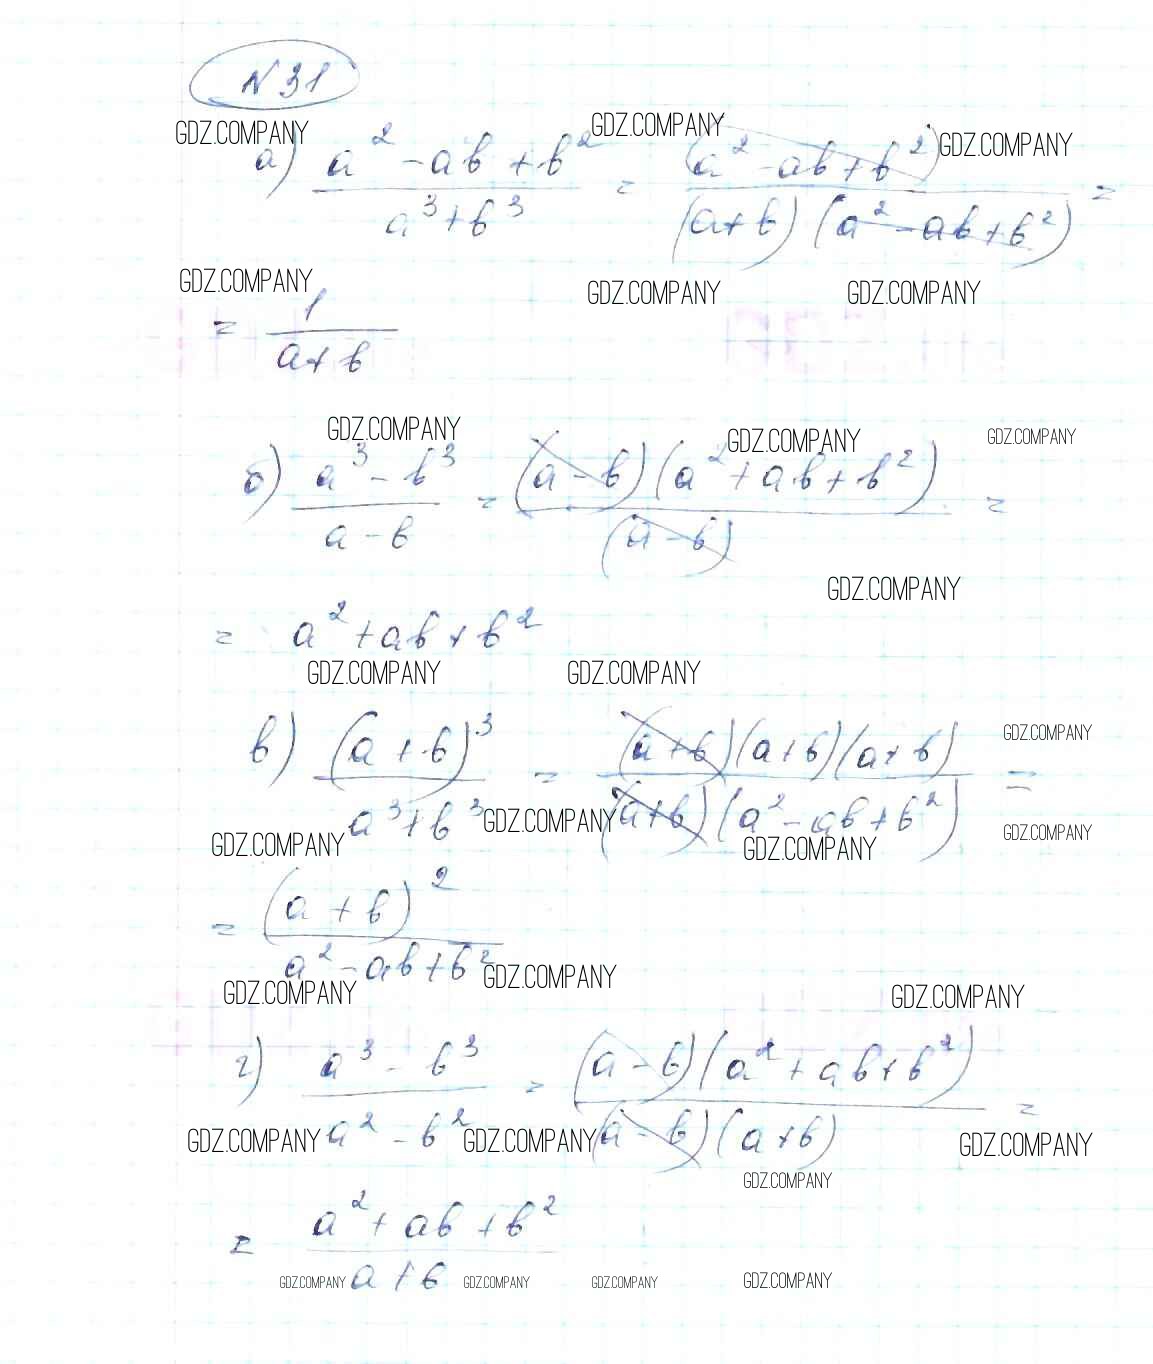 N 31
GDZ.COMPANY GDZ.COMPANY GDZ.COMPANY
а) (a² - ab + b²)/(a³ + b³) = (a² - ab + b²)/((a+b)(a² - ab + b²)) =
GDZ.COMPANY GDZ.COMPANY GDZ.COMPANY
= 1/(a+b)
GDZ.COMPANY GDZ.COMPANY GDZ.COMPANY
б) (a³ - b³)/(a - b) = (a - b)(a² + ab + b²)/(a - b) =
GDZ.COMPANY
= a² + ab + b²
GDZ.COMPANY GDZ.COMPANY
GDZ.COMPANY
в) (a + b)³/(a³ + b³) = (a+b)(a+b)(a+b)/((a+b)(a² - ab + b²)) =
GDZ.COMPANY GDZ.COMPANY GDZ.COMPANY GDZ.COMPANY
= (a + b)²/(a² - ab + b²)
GDZ.COMPANY GDZ.COMPANY GDZ.COMPANY
г) (a³ - b³)/(a² - b²) = (a - b)(a² + ab + b²)/((a - b)(a+b)) =
GDZ.COMPANY GDZ.COMPANY GDZ.COMPANY
GDZ.COMPANY
= (a² + ab + b²)/(a + b)
GDZ.COMPANY GDZ.COMPANY GDZ.COMPANY GDZ.COMPANY